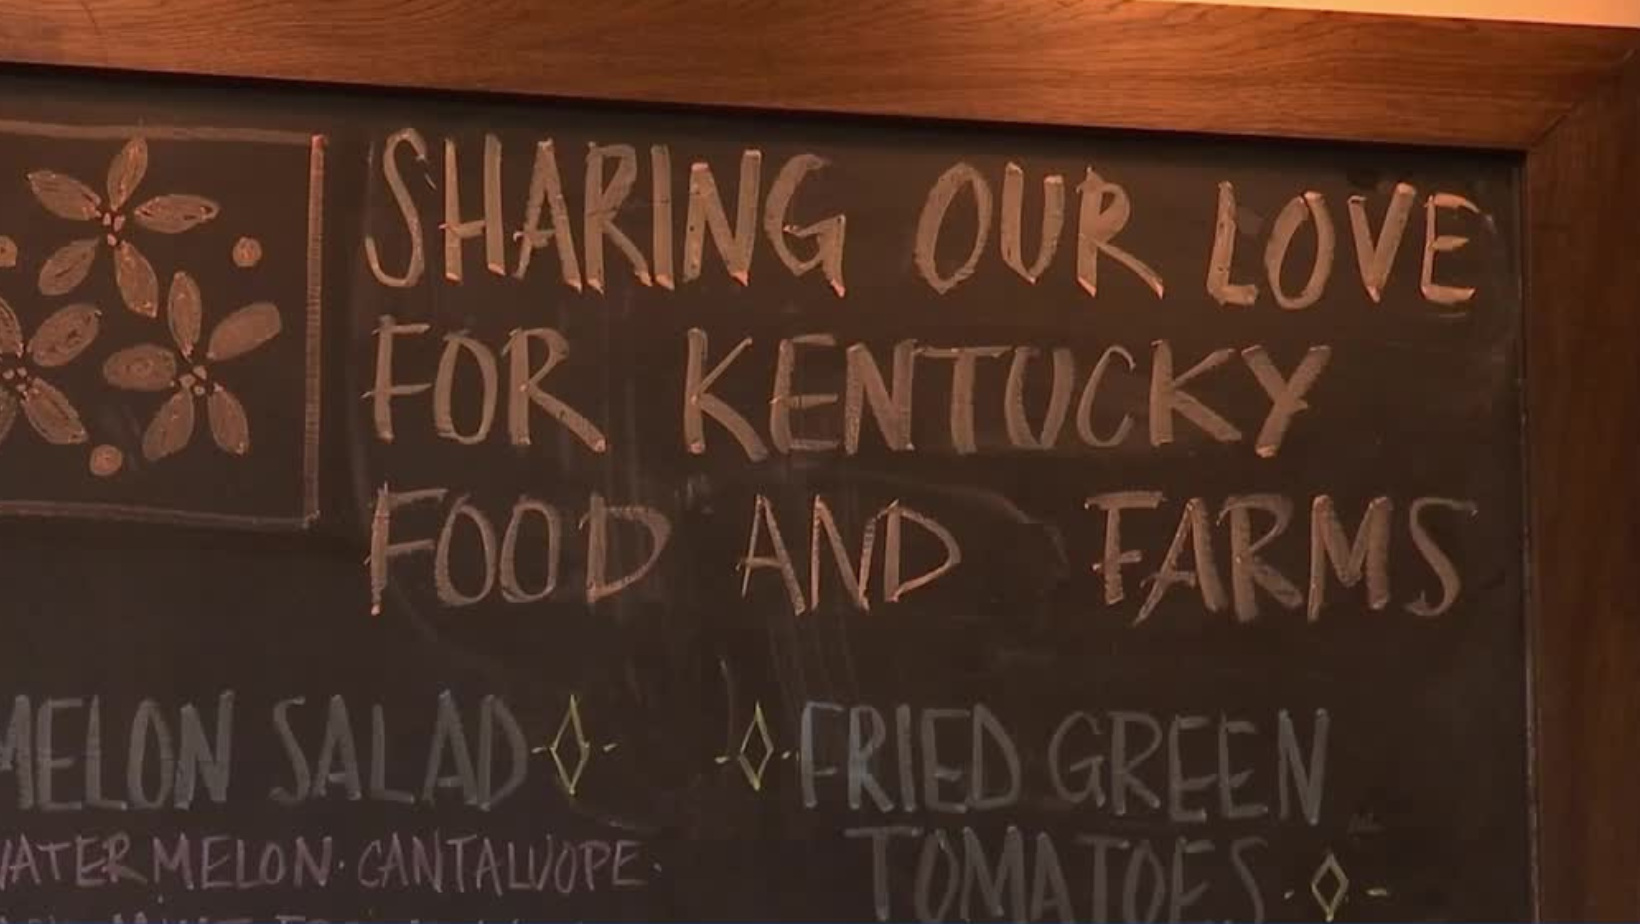 SHARING OUR LOVE
FOR KENTUCKY
FOOD AND FARMS
MELON SALAD
FRIED GREEN
TOMATOES
WATERMELON · CANTALUOPE ·